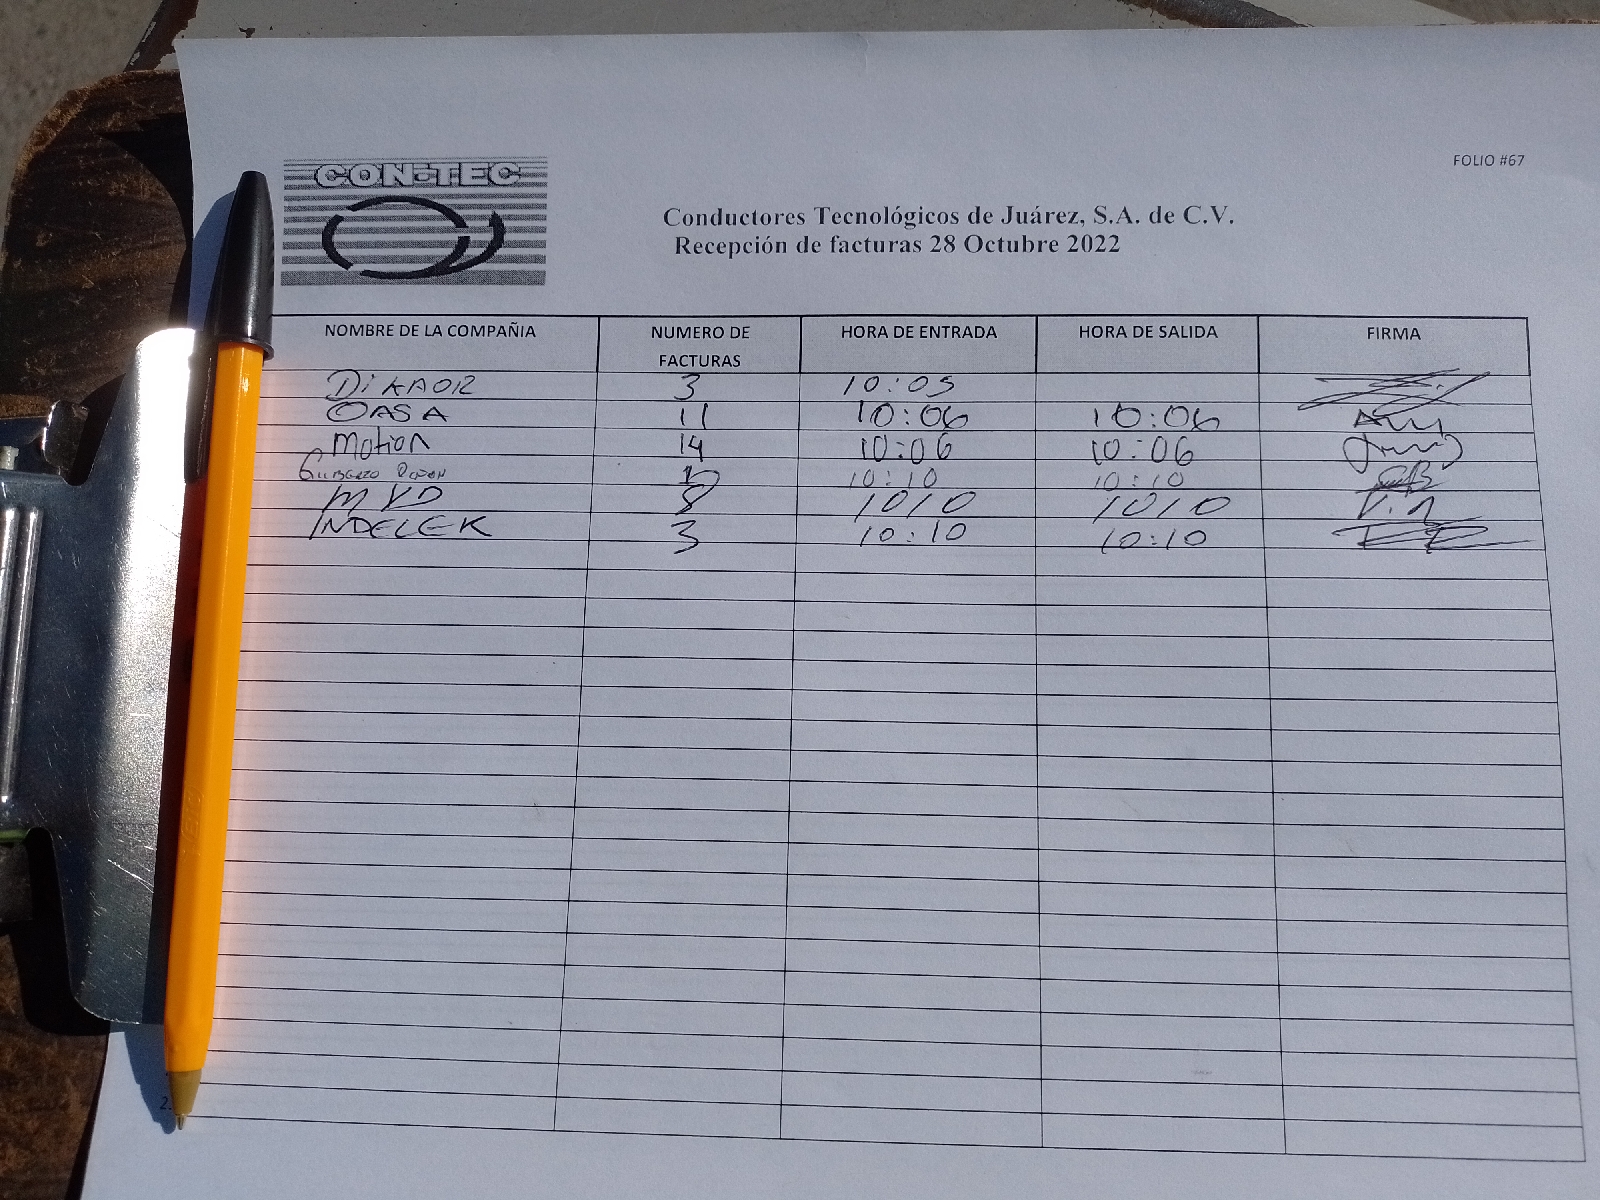 CON-TEC
FOLIO #67
Conductores Tecnológicos de Juárez, S.A. de C.V.
Recepción de facturas 28 Octubre 2022
NOMBRE DE LA COMPAÑIA NUMERO DE FACTURAS HORA DE ENTRADA HORA DE SALIDA FIRMA
DiKAOR 3 10:05
OASA 11 10:06 10:06
Motion 14 10:06 10:06
10:10 10:10
MYD 8 1010 1010
INDELEK 3 10:10 10:10